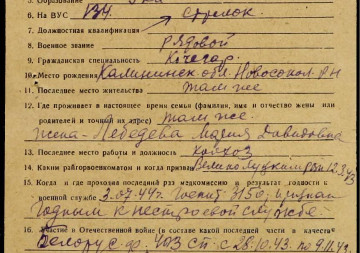 6. На ВУС 134. стрелок
7. Должностная квалификация
8. Военное звание рядовой
9. Гражданская специальность Кочегар
10. Место рождения Калининск. обл. Новосокол. р-н
11. Последнее место жительства там же
12. Где проживает в настоящее время семья (фамилия, имя и отчество жены или
родителей и точный их адрес) там же.
жена - Лебедева Мария Давидовна
13. Последнее место работы и должность Колхоз
14. Каким райгорвоенкоматом и когда призван Великолукским РВК 12.8.43
15. Когда и где проходил последний раз медкомиссию и результат годности к
военной службе 3.07.44г. Госпит. 3150, признан
Годным к нестроевой службе.
16. Участие в Отечественной войне (в составе какой последней части и в качестве
Белорус. ф. 493 сп с 28.10.43. по 9.11.43.